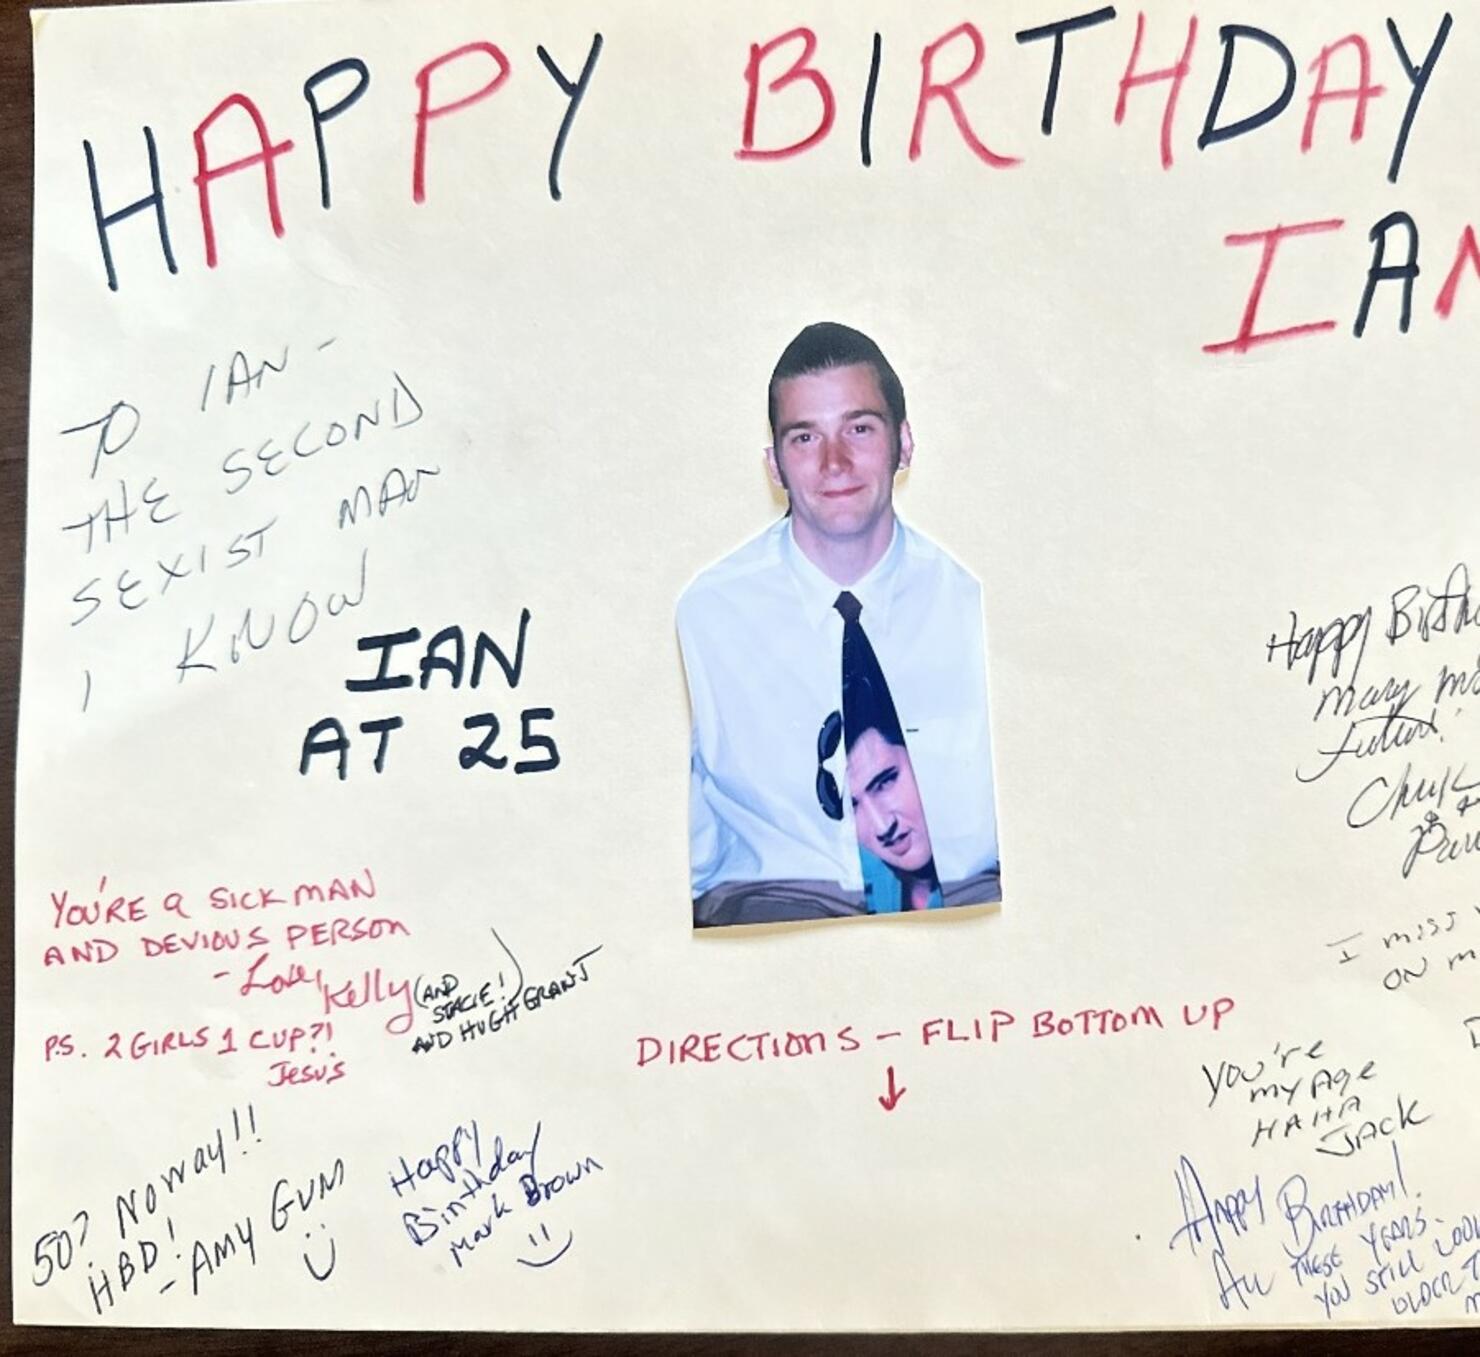 HAPPY BIRTHDAY
IAN
TO IAN -
THE SECOND
SEXIST MAN
I KNOW
IAN
AT 25
YOU'RE A SICK MAN
AND DEVIOUS PERSON
- Love, Kelly (AND
STACIE!)
AND HUGH GRANT
P.S. 2 GIRLS 1 CUP?!
Jesus
50? No way!!
HBD!
- AMY GUM
Happy
Birthday
Mark Brown
DIRECTIONS - FLIP BOTTOM UP
Happy
Mary
Chuck
I miss
ON
You're
my Age
HAHA
JACK
Happy BIRTHDAY!
All THESE YEARS-
YOU STILL LOOK
OLDER